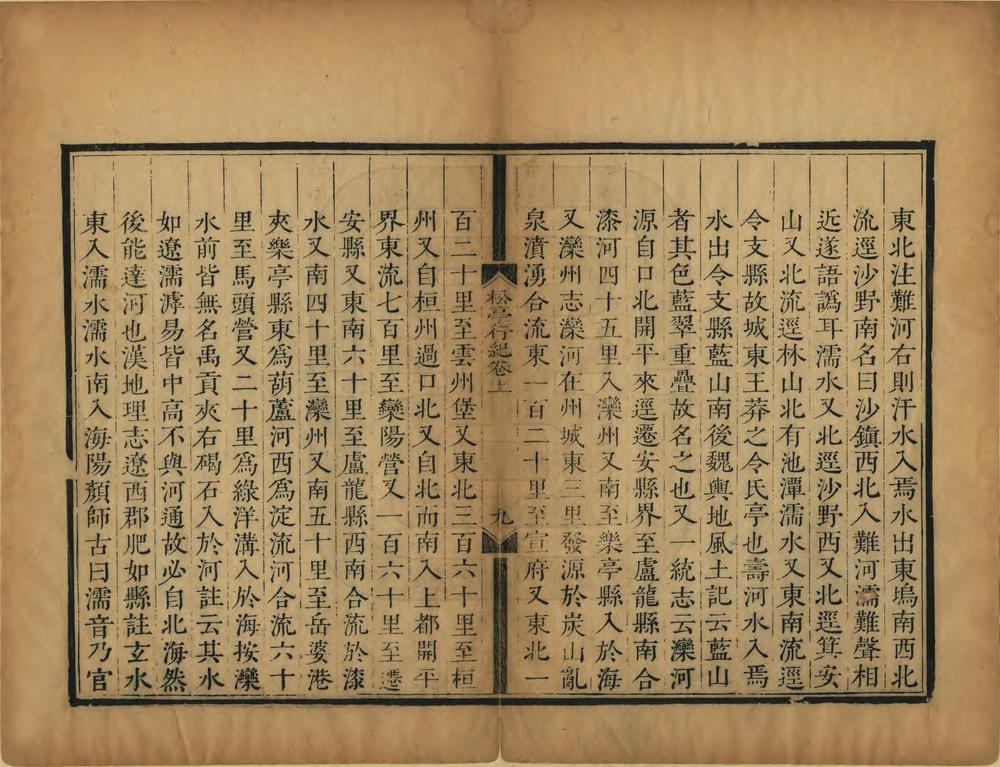 東北注難河右則汗水入焉水出東塢南西北
流逕沙野南名曰沙鎭西北入難河濡難聲相
近遂語譌耳濡水又北逕沙野西又北逕箕安
山又北流逕林山北有池潭濡水又東南流逕
令支縣故城東王莽之令氏亭也壽河水入焉
水出令支縣藍山南後魏輿地風土記云藍山
者其色藍翠重疊故名之也又一統志云灤河
源自口北開平來逕遷安縣界至盧龍縣南合
漆河四十五里入灤州又南至樂亭縣入於海
又灤州志灤河在州城東三里發源於炭山亂
泉濆湧合流東一百二十里至宣府又東北一
松亭行紀卷上
九
百二十里至雲州堡又東北三百六十里至桓
州又自桓州過口北又自北而南入上都開平
界東流七百里至欒陽營又一百六十里至遷
安縣又東南六十里至盧龍縣西南合流於漆
水又南四十里至灤州又南五十里至岳婆港
夾樂亭縣東為葫蘆河西為淀流河合流六十
里至馬頭營又二十里爲綠洋溝入於海按灤
水前皆無名禹貢夾右碣石入於河註云其水
如遼濡滹易皆中高不與河通故必自北海然
後能達河也漢地理志遼西郡肥如縣註玄水
東入濡水濡水南入海陽顏師古曰濡音乃官